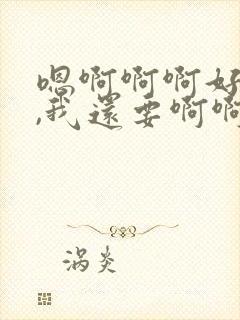 嗯啊啊啊好
,我还要啊啊
涡炎